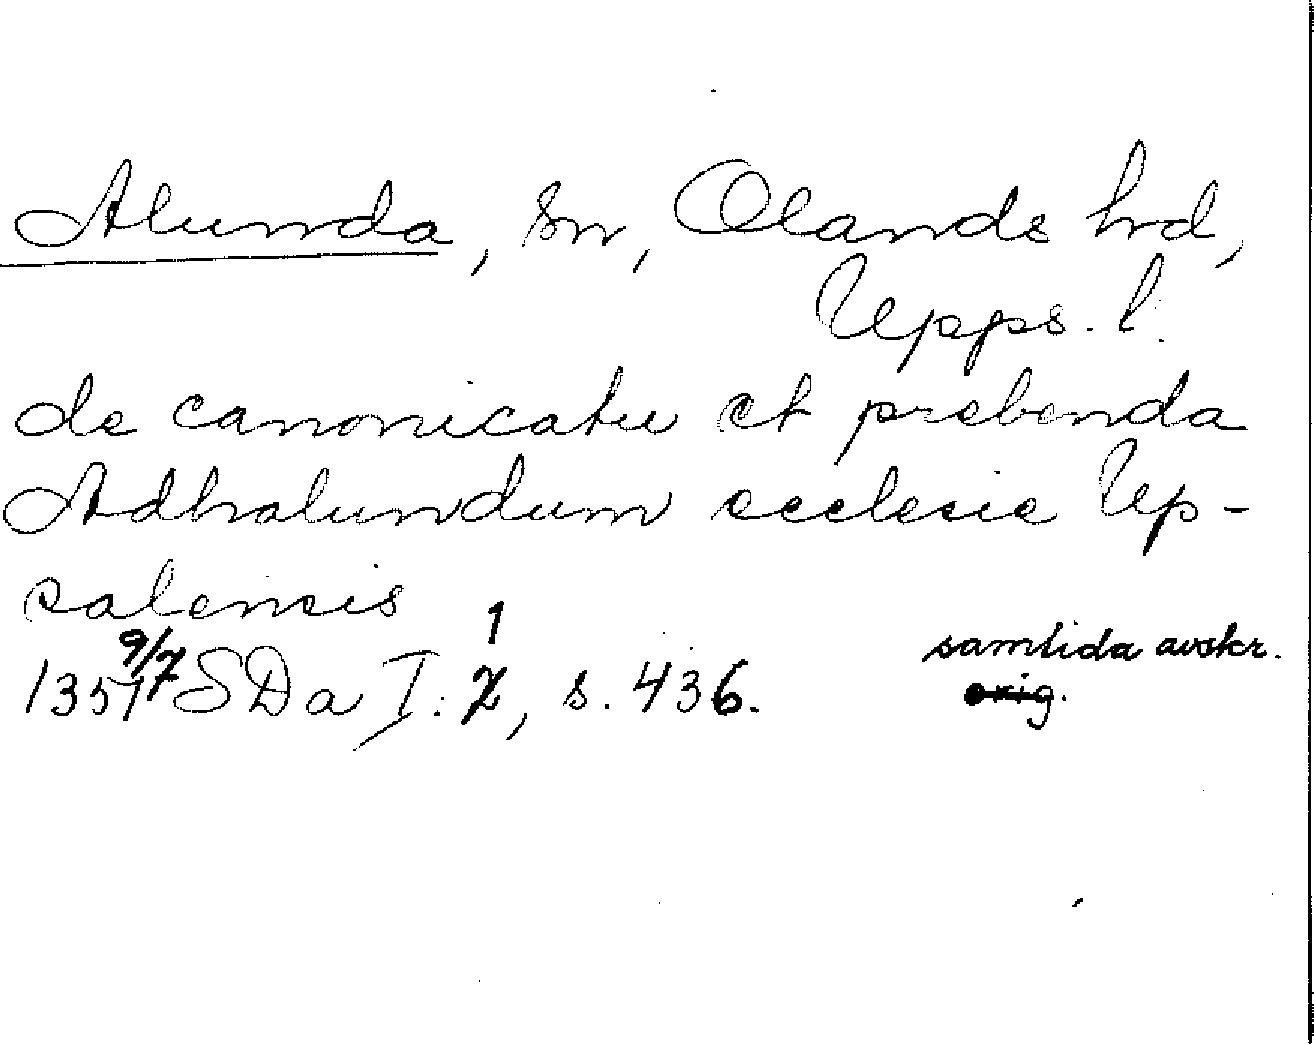 Alunda, sn, Olands hd,
Upps. l.
de canonicatu et prebenda
Adhralundum ecclesie Up-
salensis
1357 9/7 SDa I: 1, s. 436.
samtida avskr.
orig.